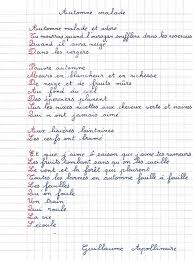 Automne malade
Automne malade et adoré
Tu mourras quand l'ouragan soufflera dans les roseraies
Quand il aura neigé
Dans les vergers
Pauvre automne
Meurs en blancheur et en richesse
De neige et de fruits mûrs
Au fond du ciel
Des éperviers planent
Sur les nixes nicettes aux cheveux verts et naines
Qui n'ont jamais aimé
Aux lisières lointaines
Les cerfs ont bramé
Et que j'aime ô saison que j'aime tes rumeurs
Les fruits tombant sans qu'on les cueille
Le vent et la forêt qui pleurent
Toutes leurs larmes en automne feuille à feuille
Les feuilles
Qu'on foule
Un train
Qui roule
La vie
S'écoule
Guillaume Apollinaire